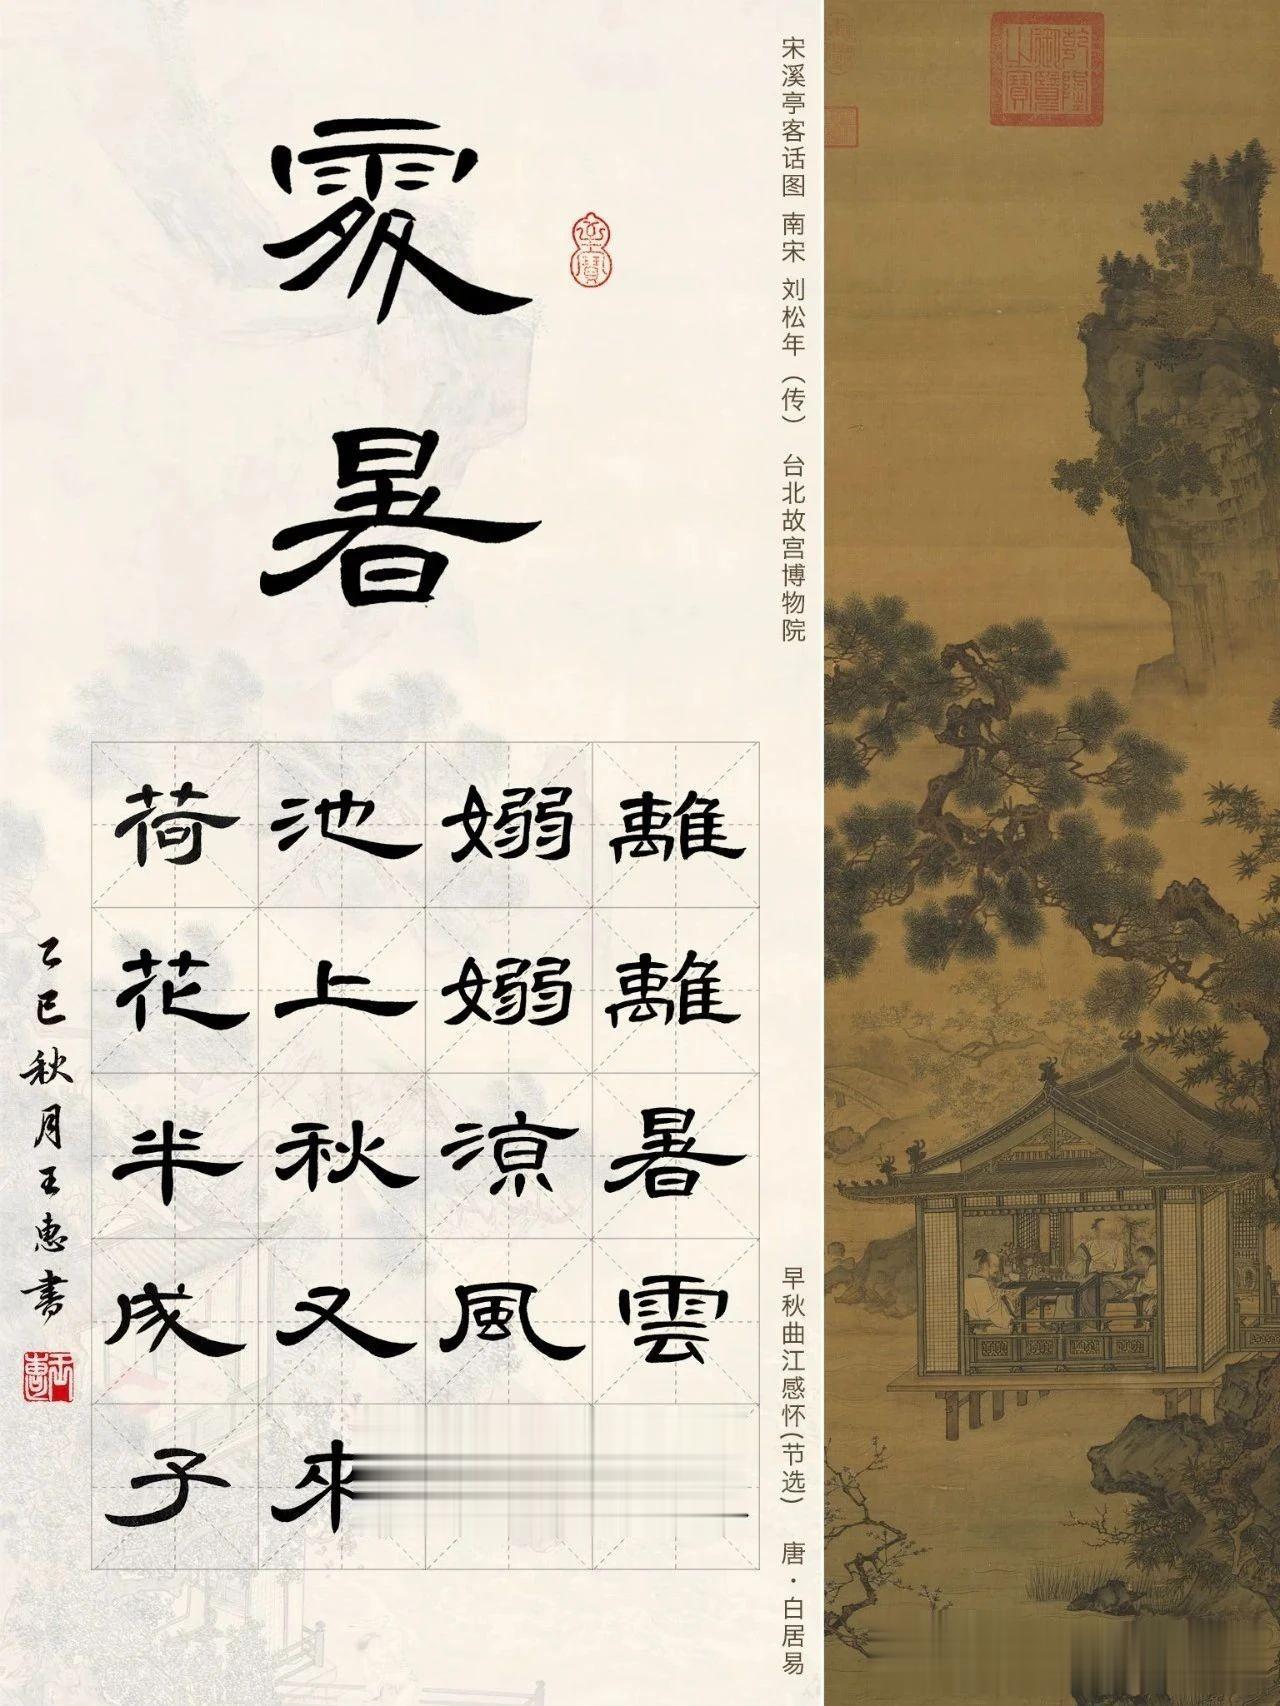 處暑
宋溪亭客话图 南宋 刘松年（传） 台北故宫博物院
乾隆御覽之寶
離離暑雲
嫋嫋涼風
池上秋又來
荷花半成子
乙巳秋月王惠書
早秋曲江感怀(节选) 唐·白居易